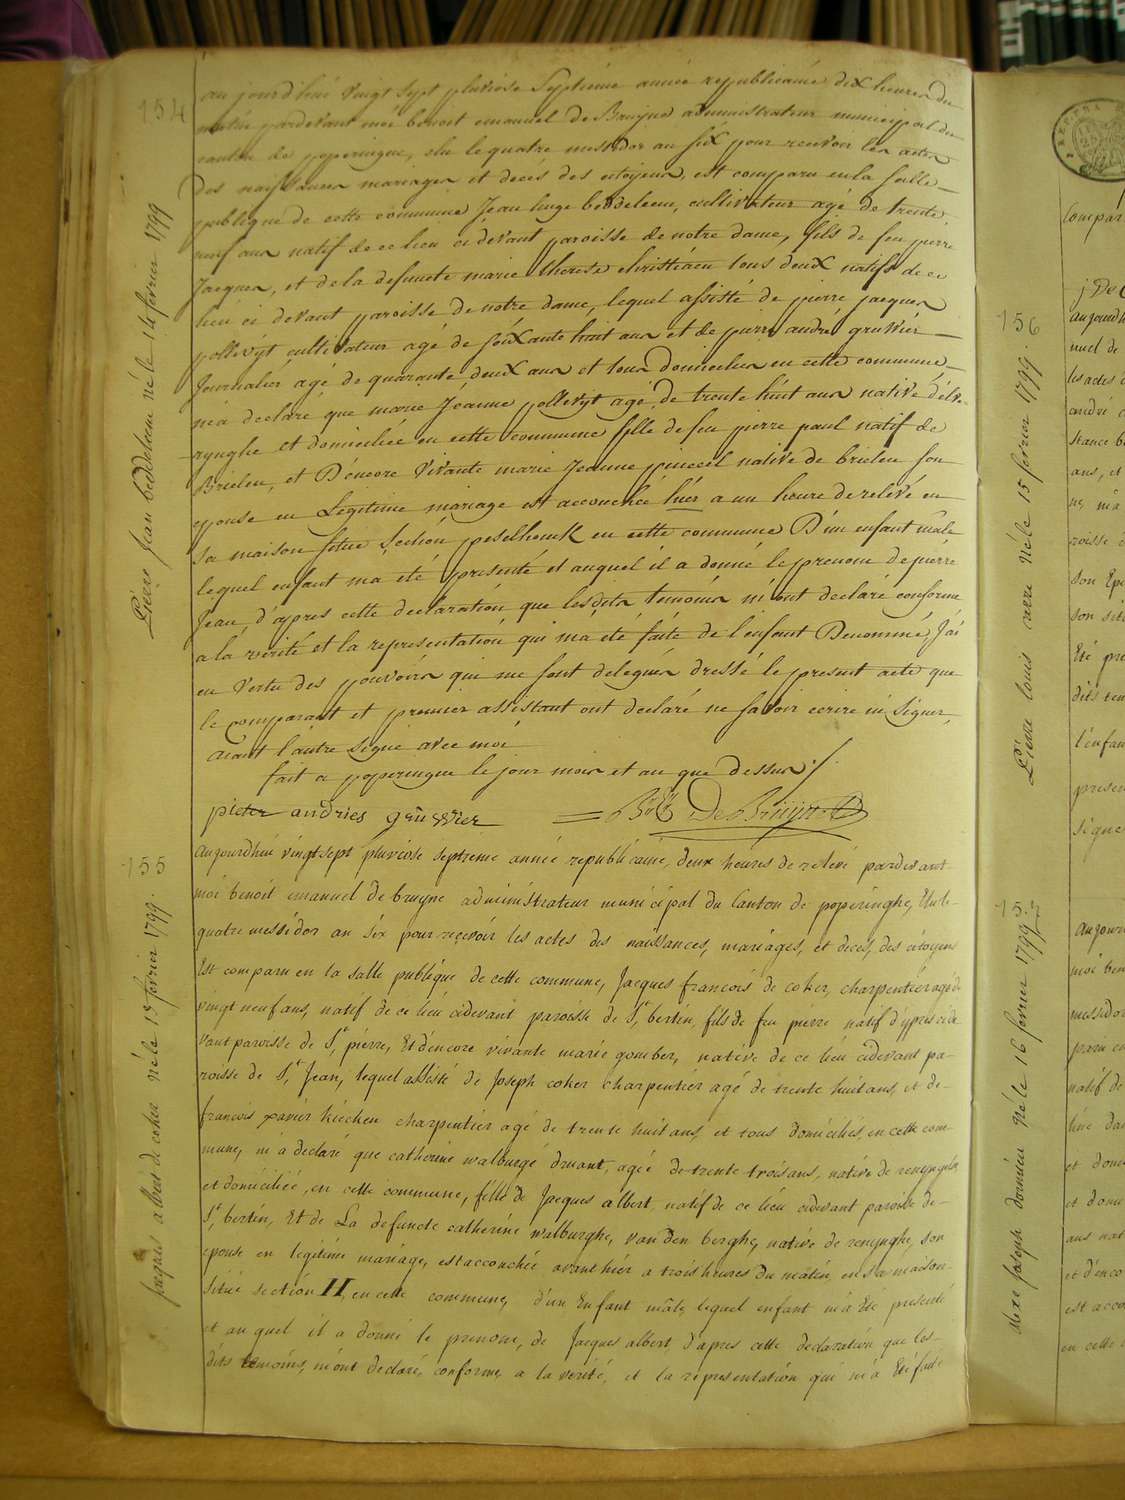 154
Pierre Jean beddeleeu né le 14 février 1799
au jourd'hui vingt sept pluviose Septiéme année republicaine dix heures du
matin pardevant moi benoit emanuel de Bruyne administrateur municipal du
canton de poperingue, elu le quatre messidor an six pour recevoir les actes
des naissances mariages et decés des citoyens, est comparu en la salle
publique de cette commune Jean beddeleeu, cultivateur agé de trente
neuf ans natif de ce lieu ci devant paroisse de notre dame, fils de feu pierre
Jacques, et de la defuncte marie therese christiaen tous deux natifs de ce
lieu ci devant paroisse de notre dame, lequel assisté de pierre jacques
pollevyt cultivateur agé de soixante huit ans et de pierre andré gruwier
Journalier agé de quarante deux ans et tous domicilies en cette commune
m'a declaré que marie Jeanne pollevyt agé de trente huit ans native d'elve-
rynghe et domiciliée en cette commune fille de feu pierre paul natif de
Brielen, et D'encore vivante marie Jeanne pinceel native de brielen son
epouse en Legitime mariage est accouchée hier a un heure de relevé en
sa maison situe Section peselhoeck en cette commune D'un enfant mâle
lequel enfant m'a eté presenté et auquel il a donné le prenom de pierre
Jean, d'apres cette declaration que lesdits temoins m'ont declaré conforme
a la verité et la representation qui m'a eté faite de l'enfant Denommé, J'ai
en Vertu des pouvoirs qui me sont delegués dressé le present acte que
le comparant et premier assistant ont declaré ne savoir ecrire ni Signer,
aiant l'autre signé avec moi
fait a poperingue le jour mois et an que dessus
pieter andries grüwier B: E: De Bruyne
155
jacques albert de coker né le 13 février 1799.
Aujourdhui vingtsept pluviose septieme année republicaine, deux heures de relevé pardevant
moi benoit emanuel de bruyne administrateur municipal du Canton de poperinghe, Elu le
quatre messidor an six pour recevoir les actes des naissances, mariages, et decés, des citoyens
Est comparu en la salle publique de cette commune, Jacques francois de coker, charpentier agé de
vingt neuf ans, natif de ce lieu cidevant paroisse de St bertin, fils de feu pierre natif d'ypres cide
vant paroisse de St pierre, Et d'encore vivante marie gomber, native de ce lieu cidevant pa-
roisse de St Jean, lequel assisté de Joseph coker charpentier agé de trente huit ans, et de
francois xavier kiecken charpentier agé de trente huit ans, et tous domiciliés, en cette com-
mune, m'a declaré que catherine walburge druant, agée de trente trois ans, native de renynghe,
et domiciliée, en cette commune, fille de Jacques albert, natif de ce lieu cidevant paroisse de
St bertin, Et de La defuncte catherine walburghe, van den berghe, native de renynghe, son
epouse en legitime mariage, est accouchée avant hier a trois heures du matin, en sa maison
situé section H, en cette commune, d'un Enfant mâle, lequel enfant m'a Eté presenté
et au quel il a donné le prenom, de Jacques albert, d'apres cette declaration que les-
dits temoins, m'ont declaré, conforme, a la verité, et la representation qui m'a Eté faite
156
Pierre louis
né le 15 février 1799.
157
né le 16 fevrier 1799
Compar
aujourdh
nuel de
les actes
andré
ans, et
roisse
son Epo
Eté pre
l'enfan
presen
signe
Aujour
moi ben
messidor
paru en
natif de
et domi
ans nat
et d'enco
est acco
en cette